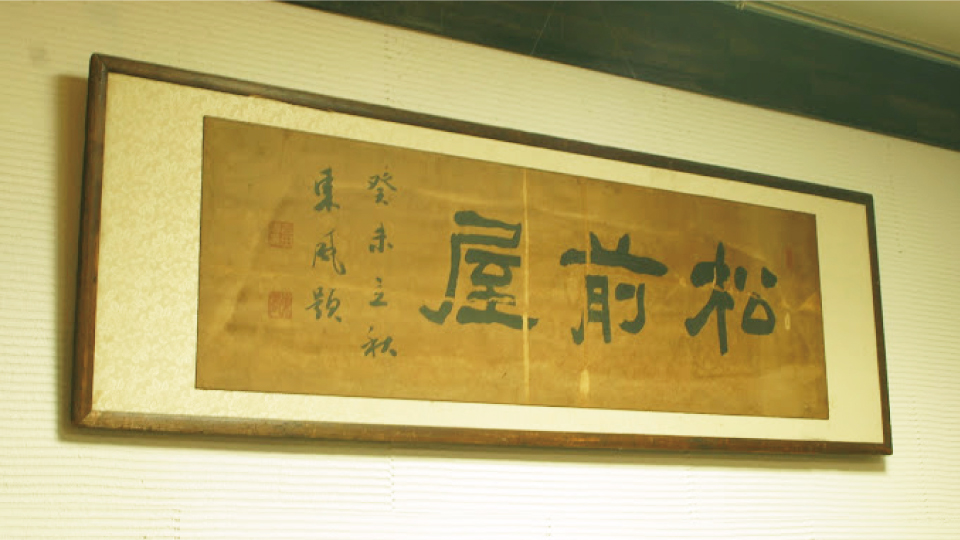 松前屋
癸未立秋
東風題